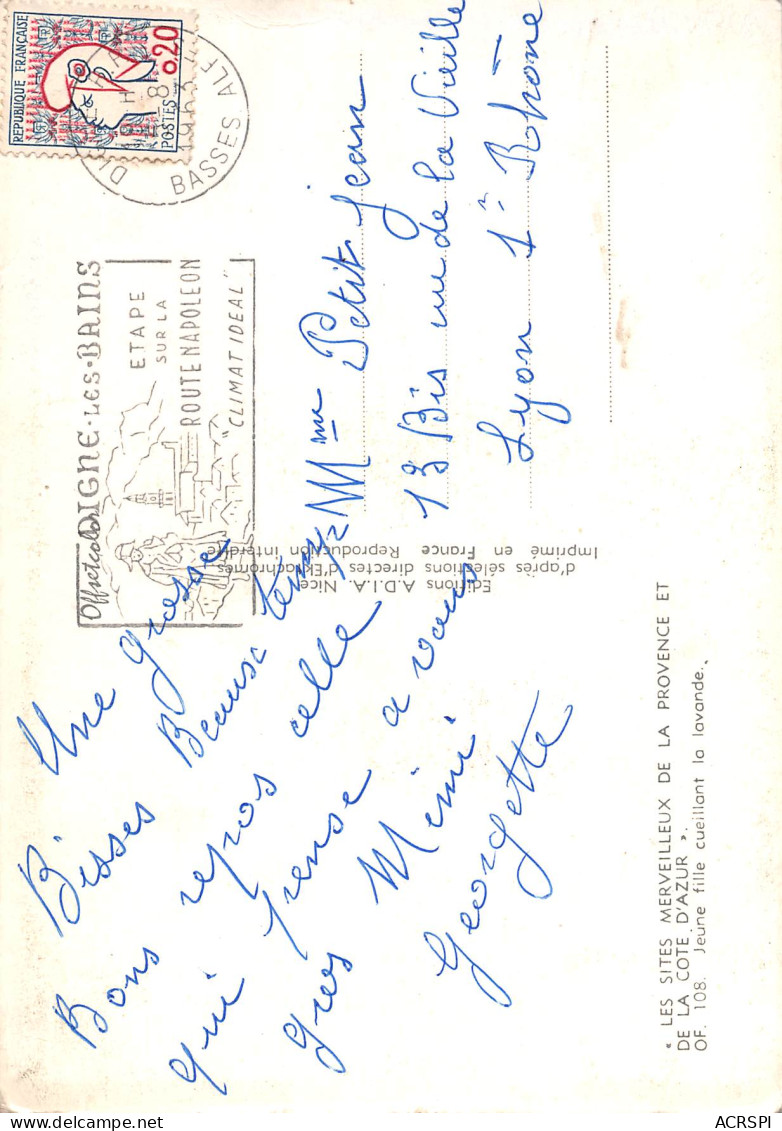 « LES SITES MERVEILLEUX DE LA PROVENCE ET
DE LA COTE D'AZUR ».
OF. 108. Jeune fille cueillant la lavande.
Une grosse
Bisses Beause temps
Bons repos celle
qui pense a vous
gros Mimi
Georgette
Editions A.D.I.A. Nice
d'après sélections directes d'Ektachromes
Imprimé en France Reproduction interdite
Offsetcolor
DIGNE·LES·BAINS
ETAPE
SUR LA
ROUTE NAPOLEON
"CLIMAT IDEAL"
REPUBLIQUE FRANÇAISE
0,20
POSTES
1963
BASSES ALP
Mme Petit jean
13 Bis rue de la Vieille
Lyon 1er Rhône
ACRSPI